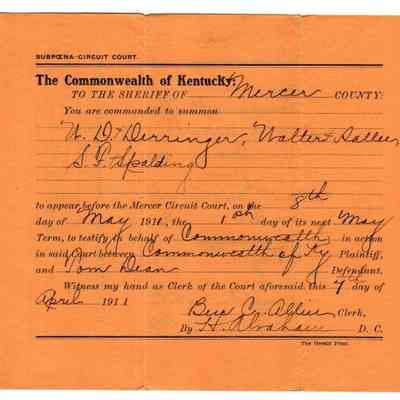 SUBPŒNA-CIRCUIT COURT.
The Commonwealth of Kentucky:
TO THE SHERIFF OF Mercer COUNTY:
You are commanded to summon
W. D. + Derringer, Walter + Sallee,
S. F. + Spalding
to appear before the Mercer Circuit Court, on the 8th
day of May 1911, the 1st day of its next May
Term, to testify in behalf of Commonwealth in action
in said Court between Commonwealth of Ky Plaintiff,
and Tom Dean Defendant.
Witness my hand as Clerk of the Court aforesaid, this 7th day of
April 1911
Ben C. Allin Clerk,
By H. Abraham D. C.
The Herald Print.